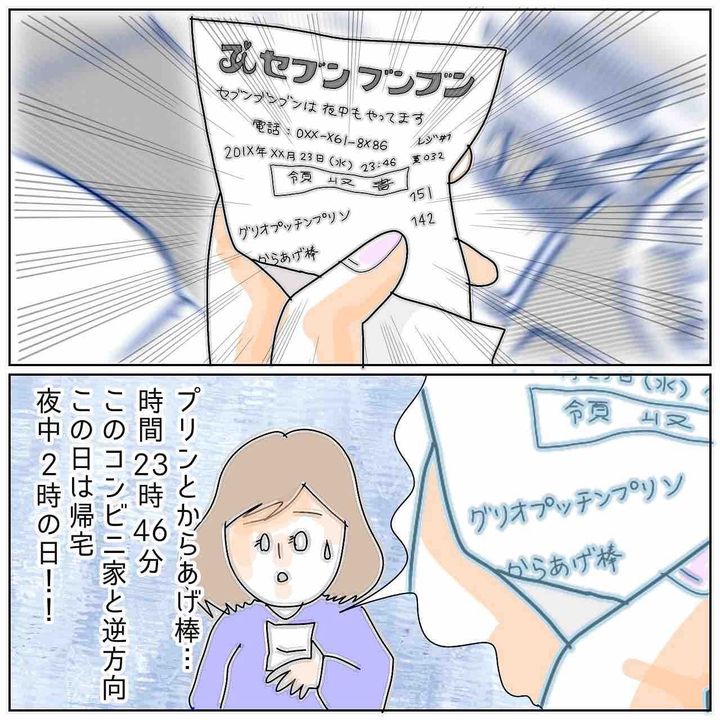 セブンブンブン
セブンブンブンは夜中もやってます
電話：0XX-X61-8X86
レジ#7
201X年XX月23日(水) 23:46 責032
領収書
151
グリオプッチンプリン 142
からあげ棒
(水)
領収書
グリオプッチンプリン
からあげ棒
プリンとからあげ棒…
時間23時46分
このコンビニ家と逆方向
この日は帰宅
夜中2時の日！！